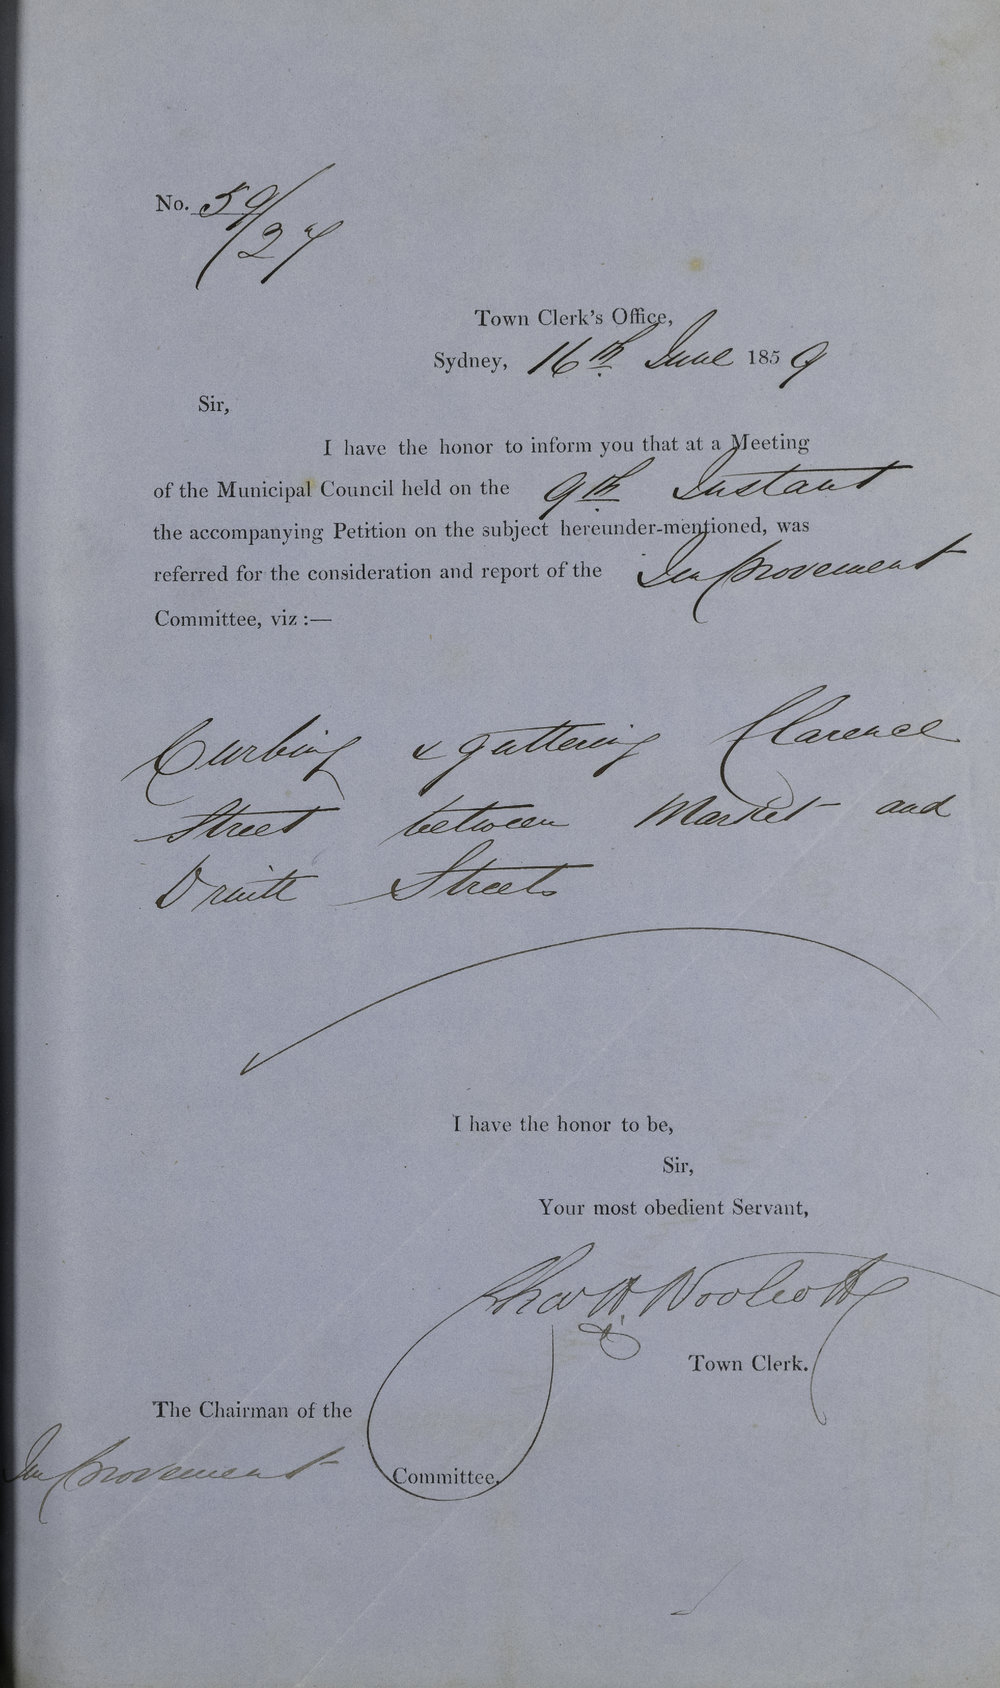 No. 59/
27
Town Clerk's Office,
Sydney, 16th June 1859
Sir,
I have the honor to inform you that at a Meeting
of the Municipal Council held on the 9th Instant
the accompanying Petition on the subject hereunder-mentioned, was
referred for the consideration and report of the Improvement
Committee, viz :—
Curbing & guttering Clarence
Street between Market and
Druitt Streets
I have the honor to be,
Sir,
Your most obedient Servant,
Chas H. Woolcott
Town Clerk.
The Chairman of the
Improvement Committee.